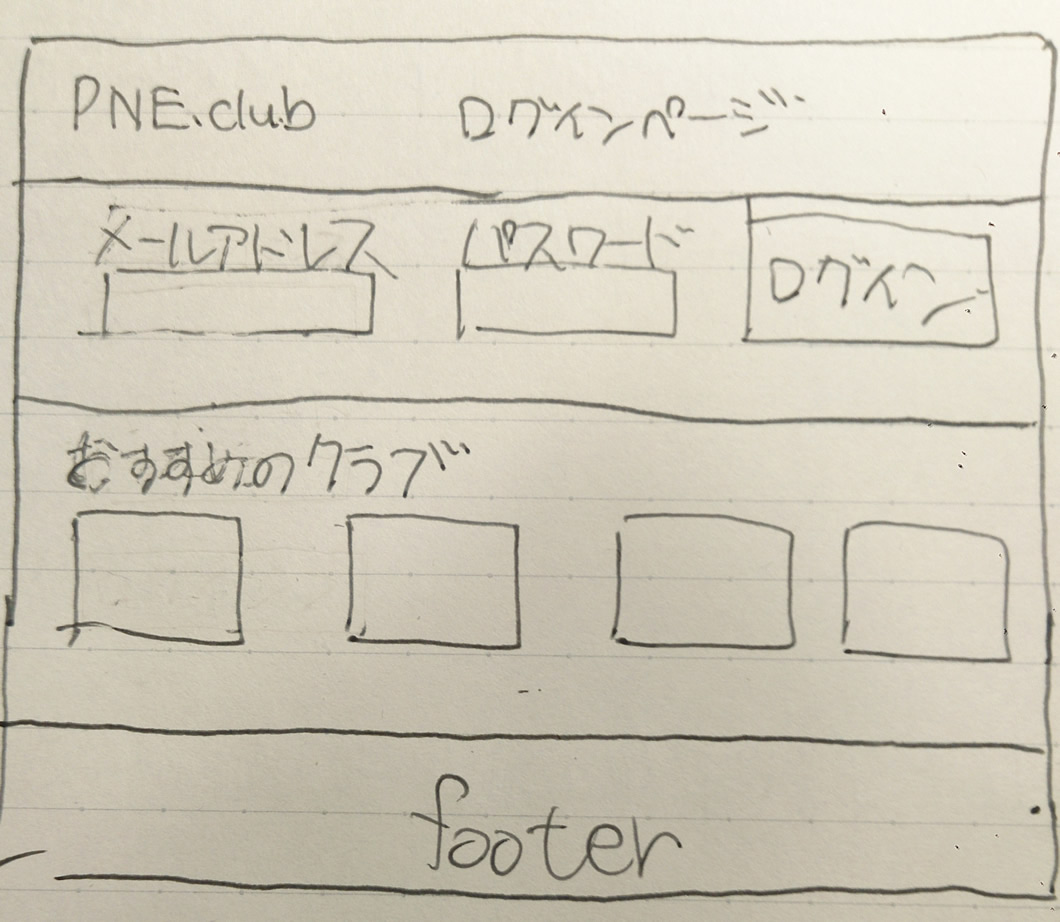 PNE.club ログインページ
メールアドレス パスワード ログイン
おすすめのクラブ
footer